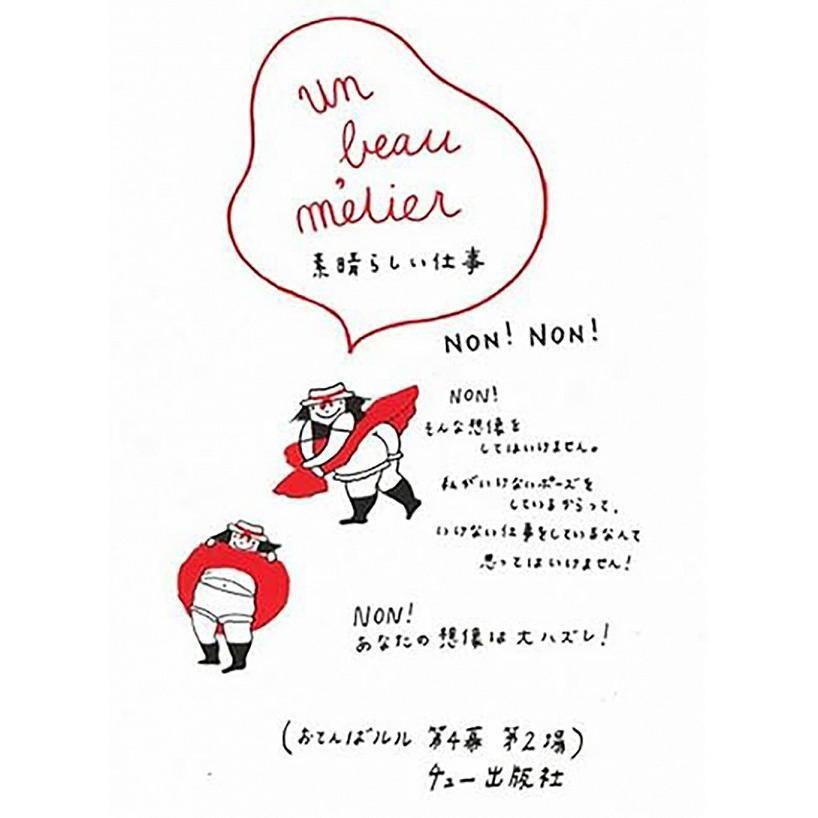 un
beau
mélier
素晴らしい仕事
NON! NON!
NON!
そんな想像を
してはいけません。
私がいけないポーズを
しているからって、
いけない仕事をしているなんて
思ってはいけません!
NON!
あなたの想像は大ハズレ!
(おてんばルル 第4幕 第2場)
チュー出版社